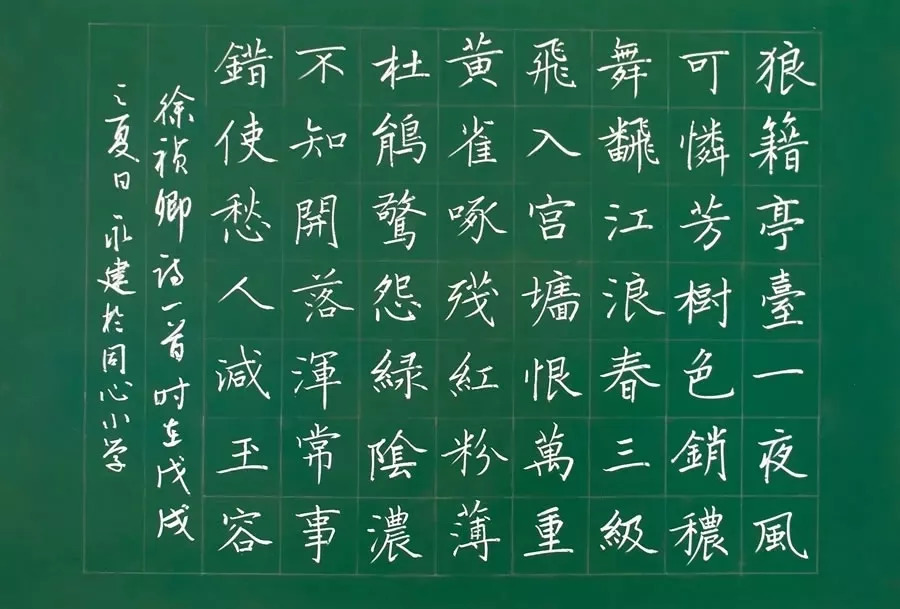 狼籍亭臺一夜風
可憐芳樹色銷穠
舞飜江浪春三級
飛入宫墻恨萬重
黃雀啄殘紅粉薄
杜鵑驚怨綠陰濃
不知開落渾常事
錯使愁人減玉容
徐禎卿詩一首时在戊戌
之夏日永建於同心小学